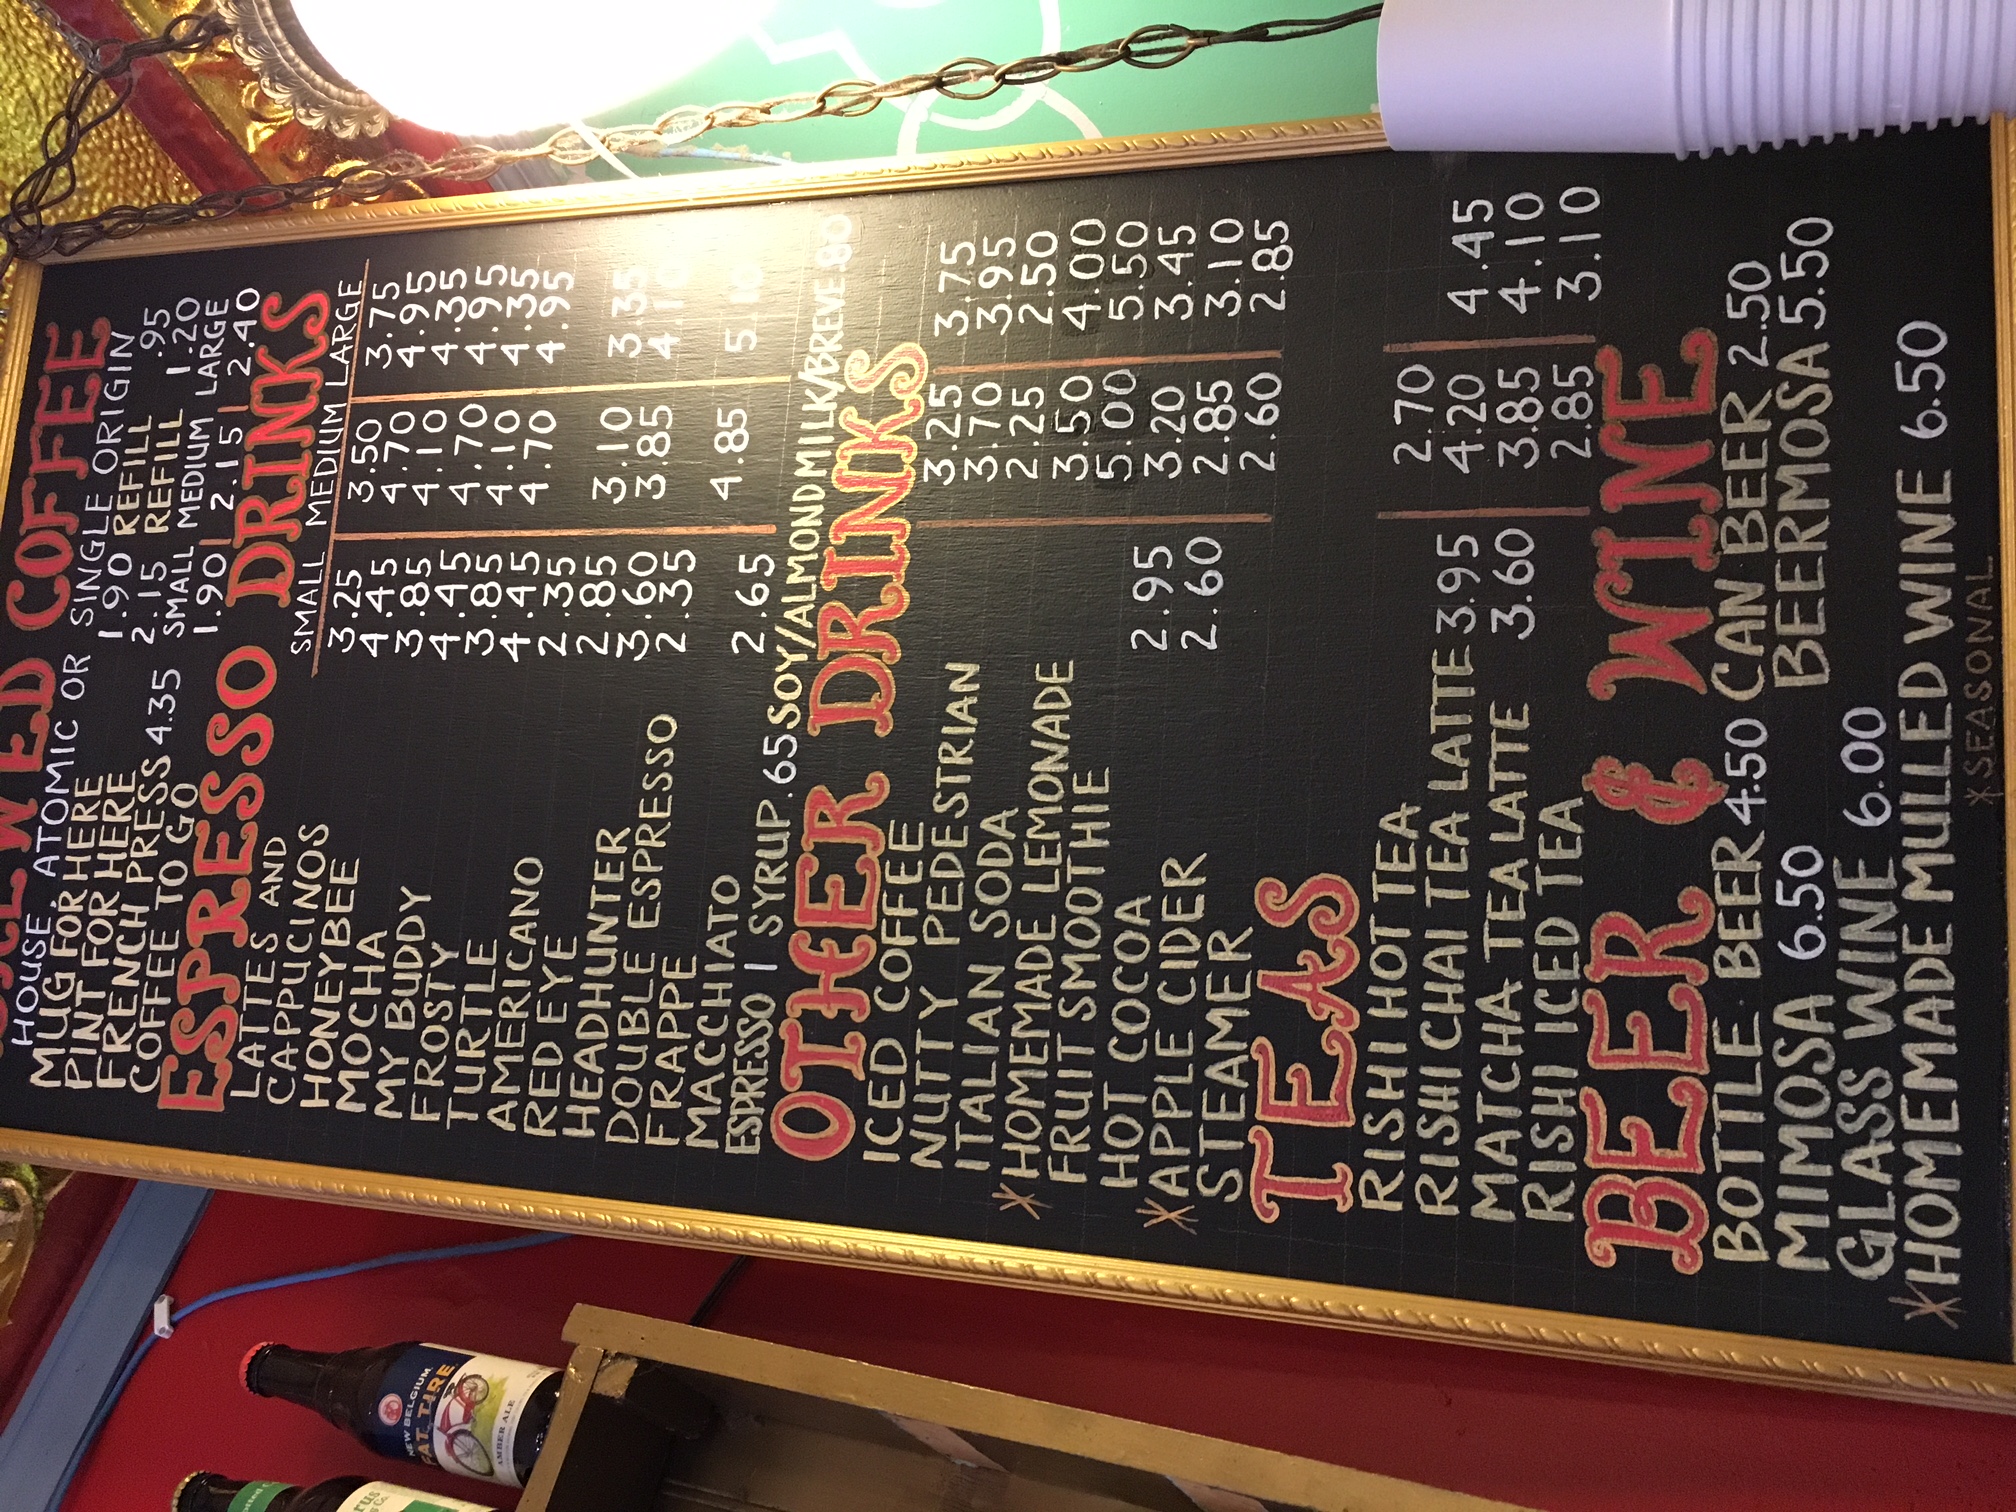 BREWED COFFEE
HOUSE, ATOMIC OR SINGLE ORIGIN
MUG FOR HERE 1.90 REFILL .95
PINT FOR HERE 2.15 REFILL 1.20
FRENCH PRESS 4.35 SMALL MEDIUM LARGE
COFFEE TO GO 1.90 | 2.15 | 2.40
ESPRESSO DRINKS
SMALL MEDIUM LARGE
LATTES AND
CAPPUCINOS 3.25 3.50 3.75
HONEYBEE 4.45 4.70 4.95
MOCHA 3.85 4.10 4.35
MY BUDDY 4.45 4.70 4.95
FROSTY 3.85 4.10 4.35
TURTLE 4.45 4.70 4.95
AMERICANO 2.35
RED EYE 2.85 3.10 3.35
HEADHUNTER 3.60 3.85 4.10
DOUBLE ESPRESSO 2.35
FRAPPE 4.85 5.10
MACCHIATO 2.65
ESPRESSO | SYRUP .65 SOY/ALMOND MILK/BREVE .80
OTHER DRINKS
ICED COFFEE 3.25 3.75
NUTTY PEDESTRIAN 3.70 3.95
ITALIAN SODA 2.25 2.50
*HOMEMADE LEMONADE 3.50 4.00
FRUIT SMOOTHIE 5.00 5.50
HOT COCOA 2.95 3.20 3.45
*APPLE CIDER 2.60 2.85 3.10
STEAMER 2.60 2.85
TEAS
RISHI HOT TEA 2.70
RISHI CHAI TEA LATTE 3.95 4.20 4.45
MATCHA TEA LATTE 3.60 3.85 4.10
RISHI ICED TEA 2.85 3.10
BEER & WINE
BOTTLE BEER 4.50 CAN BEER 2.50
MIMOSA 6.50 BEERMOSA 5.50
GLASS WINE 6.00
*HOMEMADE MULLED WINE 6.50
*SEASONAL
NEW BELGIUM
FAT TIRE
AMBER ALE